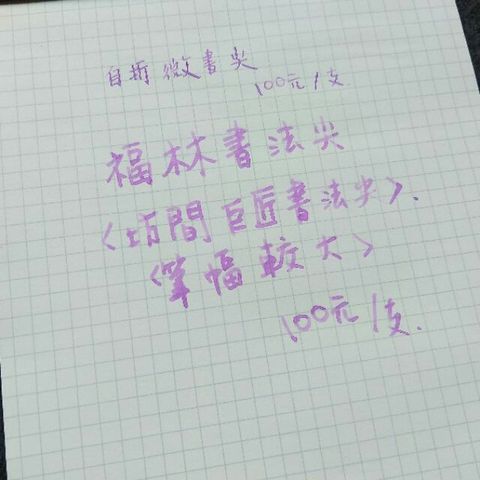 自折微書尖
100元/支
福林書法尖
<坊間巨匠書法尖>.
<筆幅較大>
100元/支.